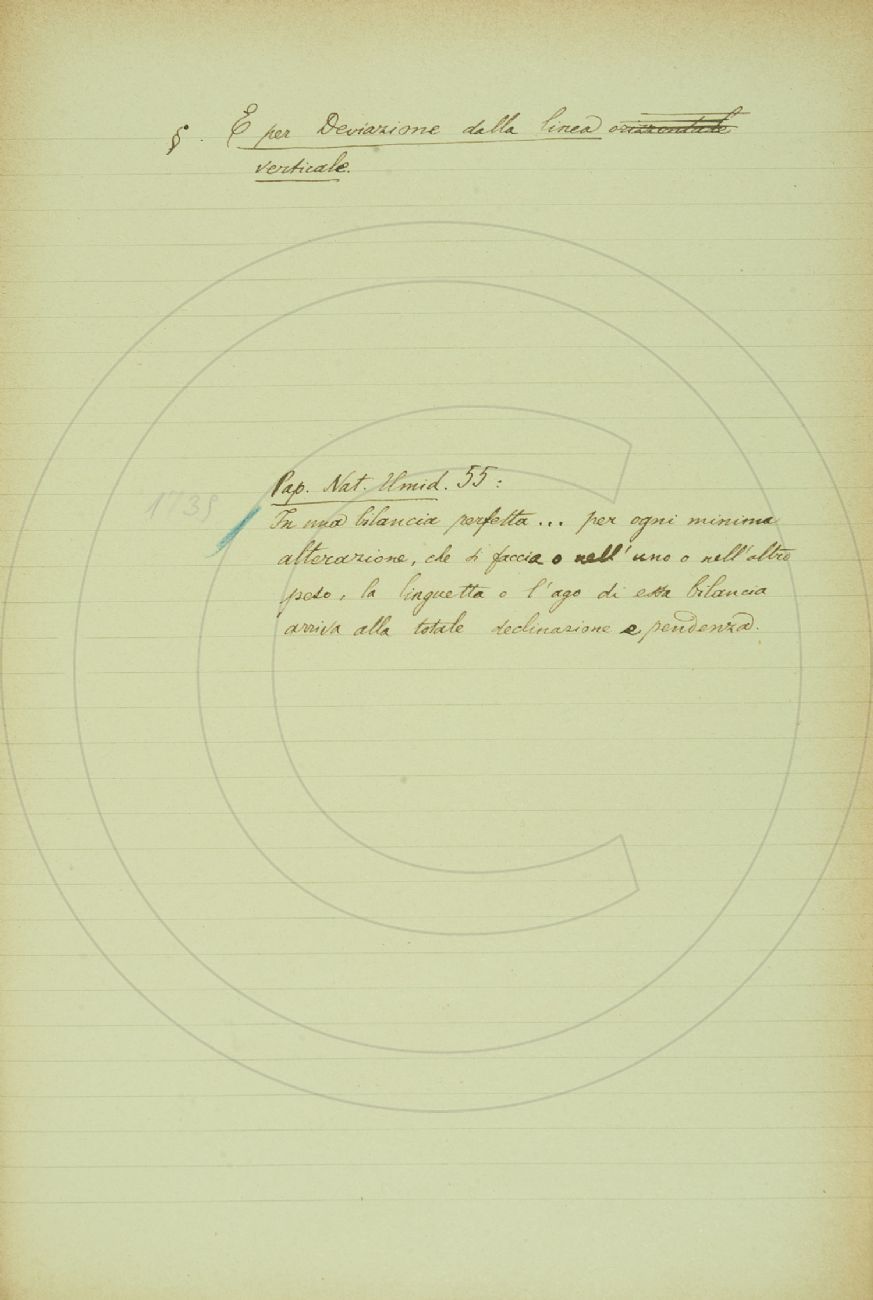 §. E per Deviazione dalla linea orizzontale
verticale.
Pap. Nat. Umid. 55:
In una bilancia perfetta... per ogni minima
alterazione, che si faccia o nell'uno o nell'altro
peso, la linguetta o l'ago di essa bilancia
arriva alla totale declinazione e pendenza.